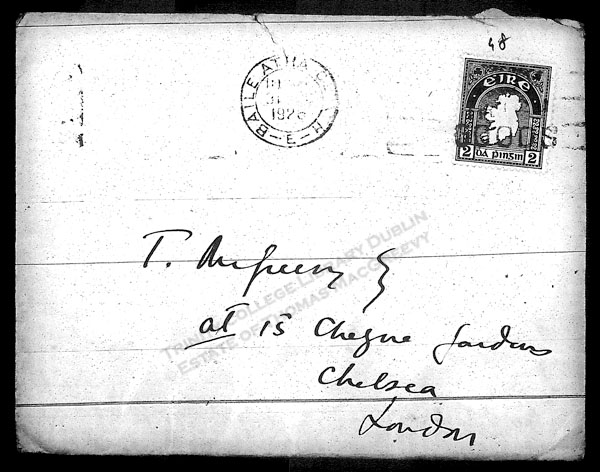 48
BAILE ÁTHA CL
192
E
H
ÉIRE
2 DÁ PINGIN 2
T. McGreevy Esq
at 15 Cheyne Gardens
Chelsea
London
TRINITY COLLEGE LIBRARY DUBLIN
ESTATE OF THOMAS MACGREEVY